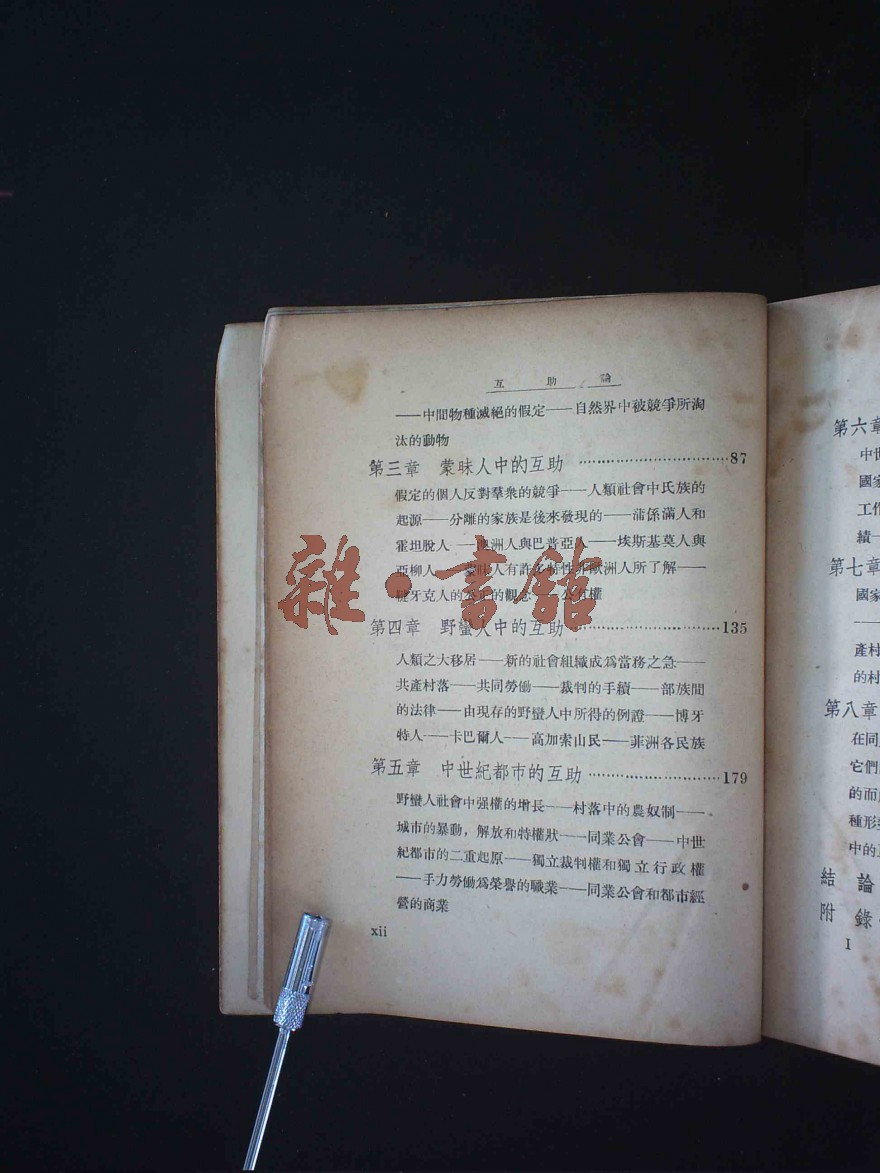 互助論
——中間物種滅絕的假定——自然界中被競爭所淘
汰的動物
第三章 蒙昧人中的互助 ……………………87
假定的個人反對羣衆的競爭——人類社會中氏族的
起源——分離的家族是後來發現的——蒲係滿人和
霍坦脫人——澳洲人與巴普亞人——埃斯基莫人與
亞柳人——蒙昧人有許多特性非歐洲人所了解——
人的公正的觀念——公有權
第四章 野蠻人中的互助 ……………………135
人類之大移居——新的社會組織成爲當務之急——
共產村落——共同勞働——裁判的手續——部族間
的法律——由現存的野蠻人中所得的例證——博牙
特人——卡巴爾人——高加索山民——菲洲各民族
第五章 中世紀都市的互助 …………………179
野蠻人社會中强權的增長——村落中的農奴制——
城市的暴動，解放和特權狀——同業公會——中世
紀都市的二重起原——獨立裁判權和獨立行政權
——手力勞働爲榮譽的職業——同業公會和都市經
營的商業
xii
雜·書館
第六章
中世
國家
工作
績—
第七章
國家
——
產村
的村
第八章
在同
它們
的而
種形
中的
結論
附錄
I